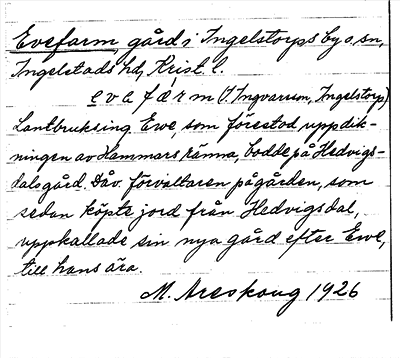 Evefarm, gård i Ingelstorps by o. sn,
Ingelstads hd, Krist. l.
e v a f a r m (I. Ingvarsson, Ingelstorp)
Lantbruksing. Ewe, som förestod uppdik-
ningen av Hammars ränna, bodde på Hedvigs-
dals gård. Dåv. förvaltaren på gården, som
sedan köpte jord från Hedvigsdal,
uppkallade sin nya gård efter Ewe,
till hans ära.
M. Areskoug 1926